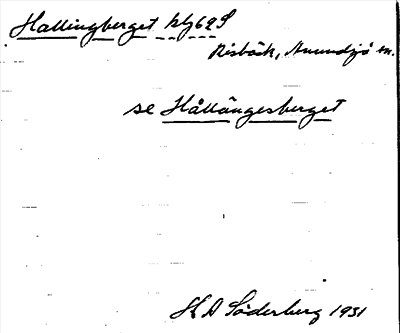 Hallingberget klj62S
Risbäck, Anundsjö sn.
se Hållängesberget
H A Söderberg 1931